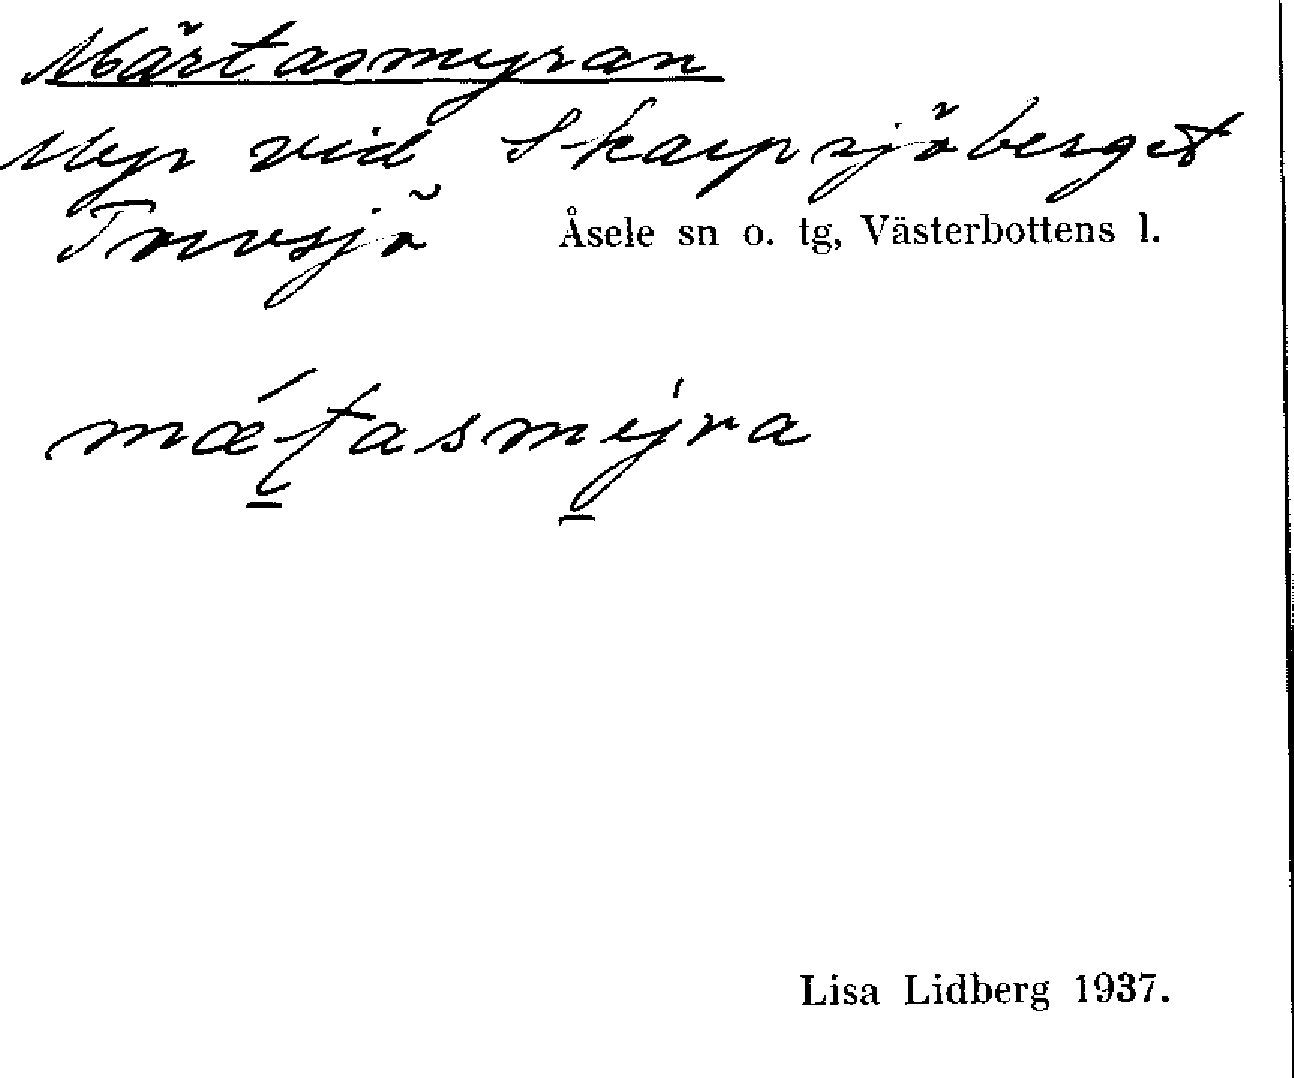 Märtasmyran
Myr vid Skarpsjöberget
Torvsjö Åsele sn o. tg, Västerbottens l.
mǽʈasmýra
Lisa Lidberg 1937.